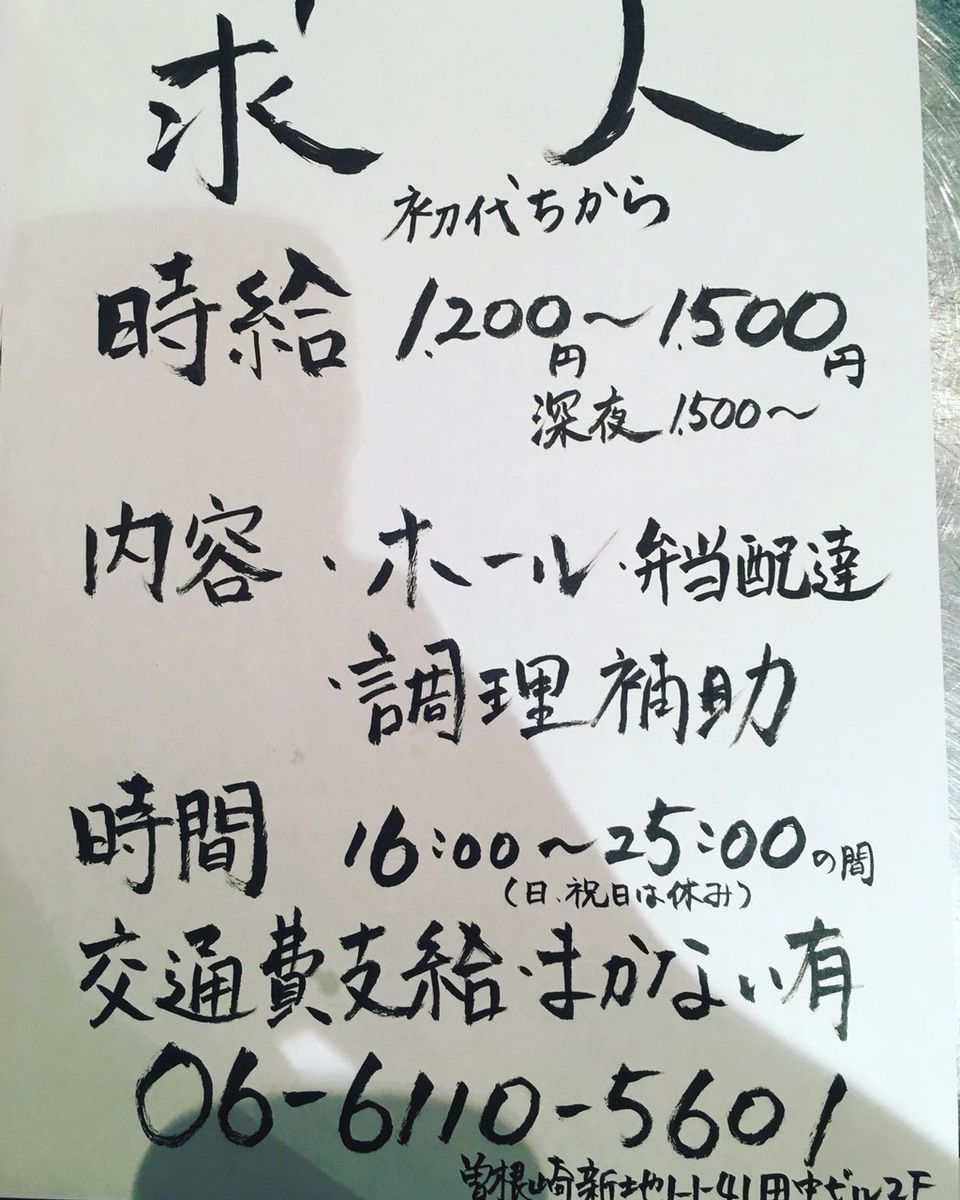 求人
初代ちから
時給 1,200円〜1,500円
深夜 1,500〜
内容 ・ホール・弁当配達
・調理補助
時間 16:00〜25:00の間
(日、祝日は休み)
交通費支給・まかない有
06-6110-5601
曽根崎新地1-1-41田中ビル2F